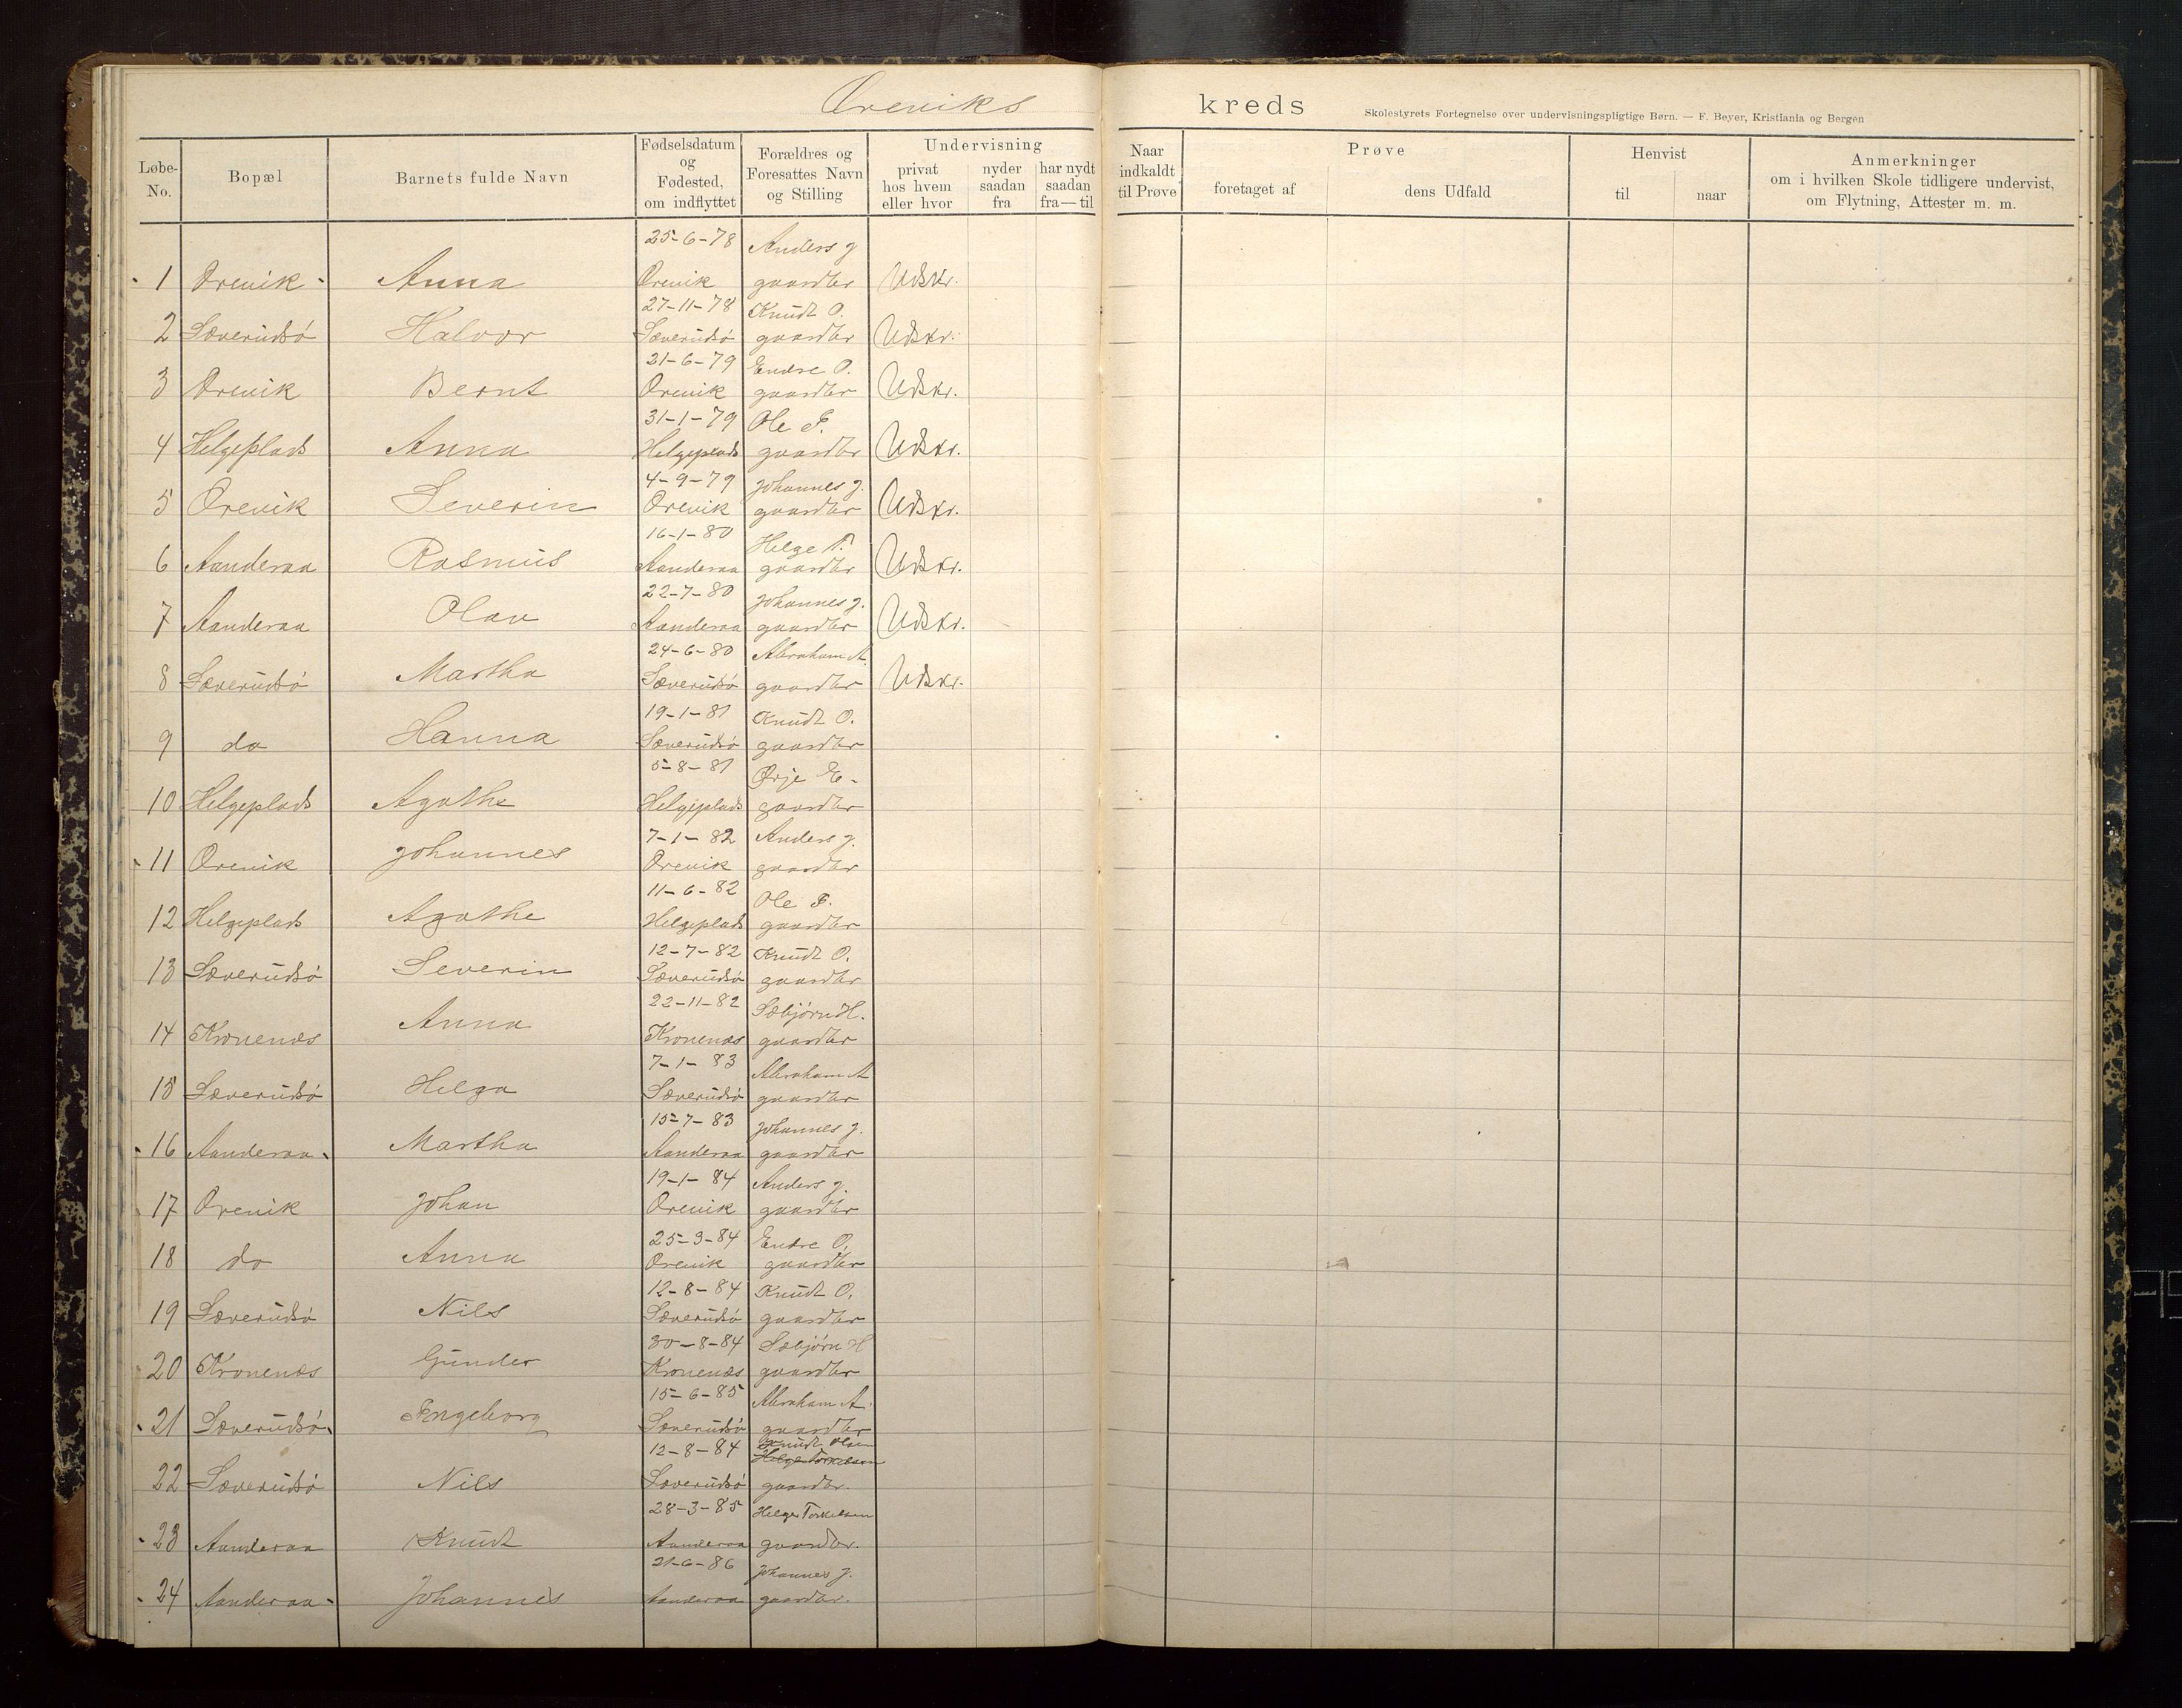 Øreviks kreds
Skolestyrets Fortegnelse over undervisningspligtige Børn. — F. Beyer, Kristiania og Bergen
Løbe-No. Bopæl Barnets fulde Navn Fødselsdatum og Fødested, om indflyttet Forældres og Foresattes Navn og Stilling Undervisning privat hos hvem eller hvor nyder saadan fra har nydt saadan fra — til Naar indkaldt til Prøve Prøve foretaget af dens Udfald Henvist til naar Anmerkninger om i hvilken Skole tidligere undervist, om Flytning, Attester m. m.
25-6-78 Anders J
1 Ørevik Anna Ørevik gaardbr Udskr.
27-11-78 Knudt O.
2 Sæverudsø Halvor Sæverudsø gaardbr Udskr.
21-6-79 Endre O.
3 Ørevik Bernt Ørevik gaardbr Udskr.
31-1-79 Ole F.
4 Helgeplads Anna Helgeplads gaardbr Udskr.
4-9-79 Johannes J.
5 Ørevik Severin Ørevik gaardbr Udskr.
16-1-80 Helge T.
6 Aanderaa Rasmus Aanderaa gaardbr Udskr.
22-7-80 Johannes J.
7 Aanderaa Olav Aanderaa gaardbr Udskr.
24-6-80 Abraham A.
8 Sæverudsø Martha Sæverudsø gaardbr Udskr.
19-1-81 Knudt O.
9 do Hanna Sæverudsø gaardbr
5-8-81 E.
10 Helgeplads Agathe Helgeplads gaardbr
7-1-82 Anders J.
11 Ørevik Johannes Ørevik gaardbr
11-6-82 Ole F.
12 Helgeplads Agathe Helgeplads gaardbr
12-7-82 Knudt O.
13 Sæverudsø Severin Sæverudsø gaardbr
22-11-82 Sæbjørn H.
14 Kronenæs Anna Kronenæs gaardbr
7-1-83 Abraham A
15 Sæverudsø Helga Sæverudsø gaardbr
15-7-83 Johannes J.
16 Aanderaa Martha Aanderaa gaardbr
19-1-84 Anders J.
17 Ørevik Johan Ørevik gaardbr
25-3-84 Endre O.
18 do Anna Ørevik gaardbr
12-8-84 Knudt O.
19 Sæverudsø Nils Sæverudsø gaardbr
30-8-84 Sæbjørn H
20 Kronenæs Gunder Kronenæs gaardbr
15-6-85 Abraham A.
21 Sæverudsø Ingeborg Sæverudsø gaardbr
12-8-84 Knudt Olsen
Helge Torkelsen
22 Sæverudsø Nils Sæverudsø gaardbr.
28-3-85 Helge Torkelsen
23 Aanderaa Knudt Aanderaa gaardbr.
21-6-86 Johannes J.
24 Aanderaa Johannes Aanderaa gaardbr.